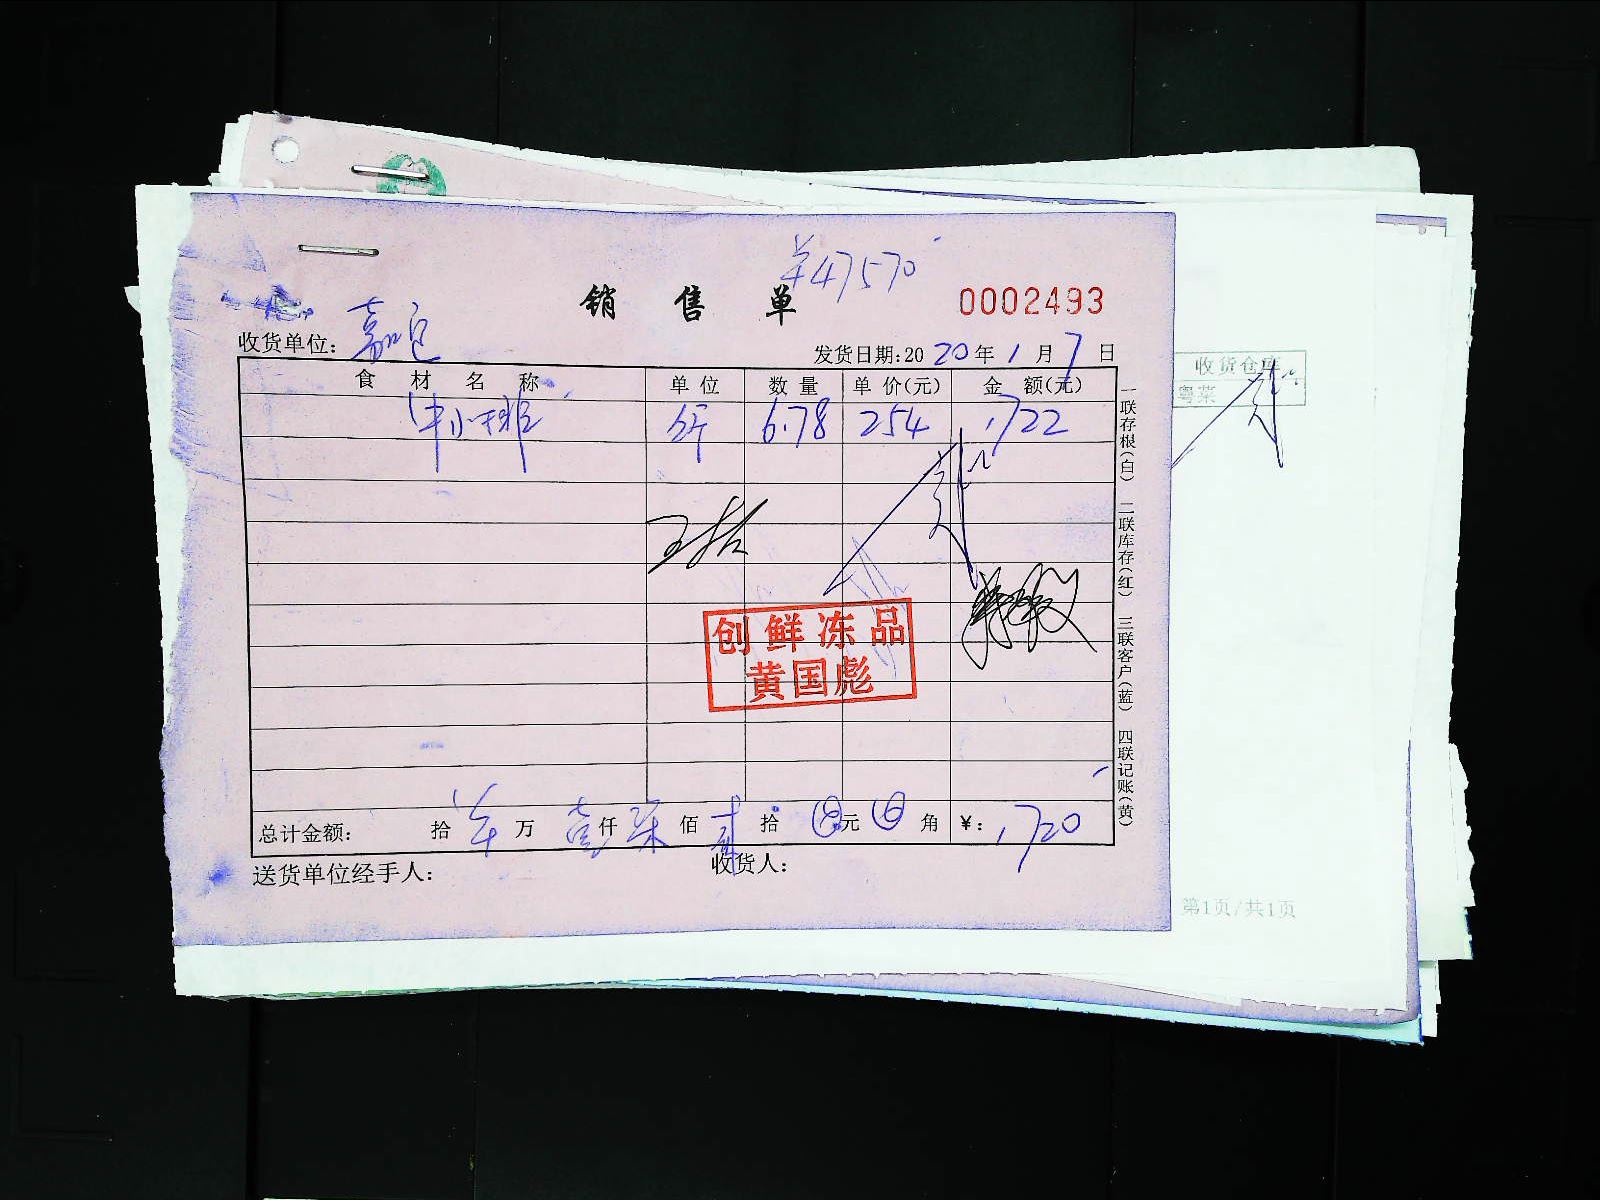 ¥47570
销售单 0002493
收货单位: 嘉包
发货日期:2020年1月7日
收货仓库
粤菜
食材名称 单位 数量 单价(元) 金额(元)
中小班 斤 6.78 254 1722
一联存根(白) 二联库存(红) 三联客户(蓝) 四联记账(黄)
创鲜冻品
黄国彪
总计金额: 拾 万 壹仟 柒佰 贰拾 元 角 ¥: 1720
送货单位经手人: 收货人:
第1页/共1页